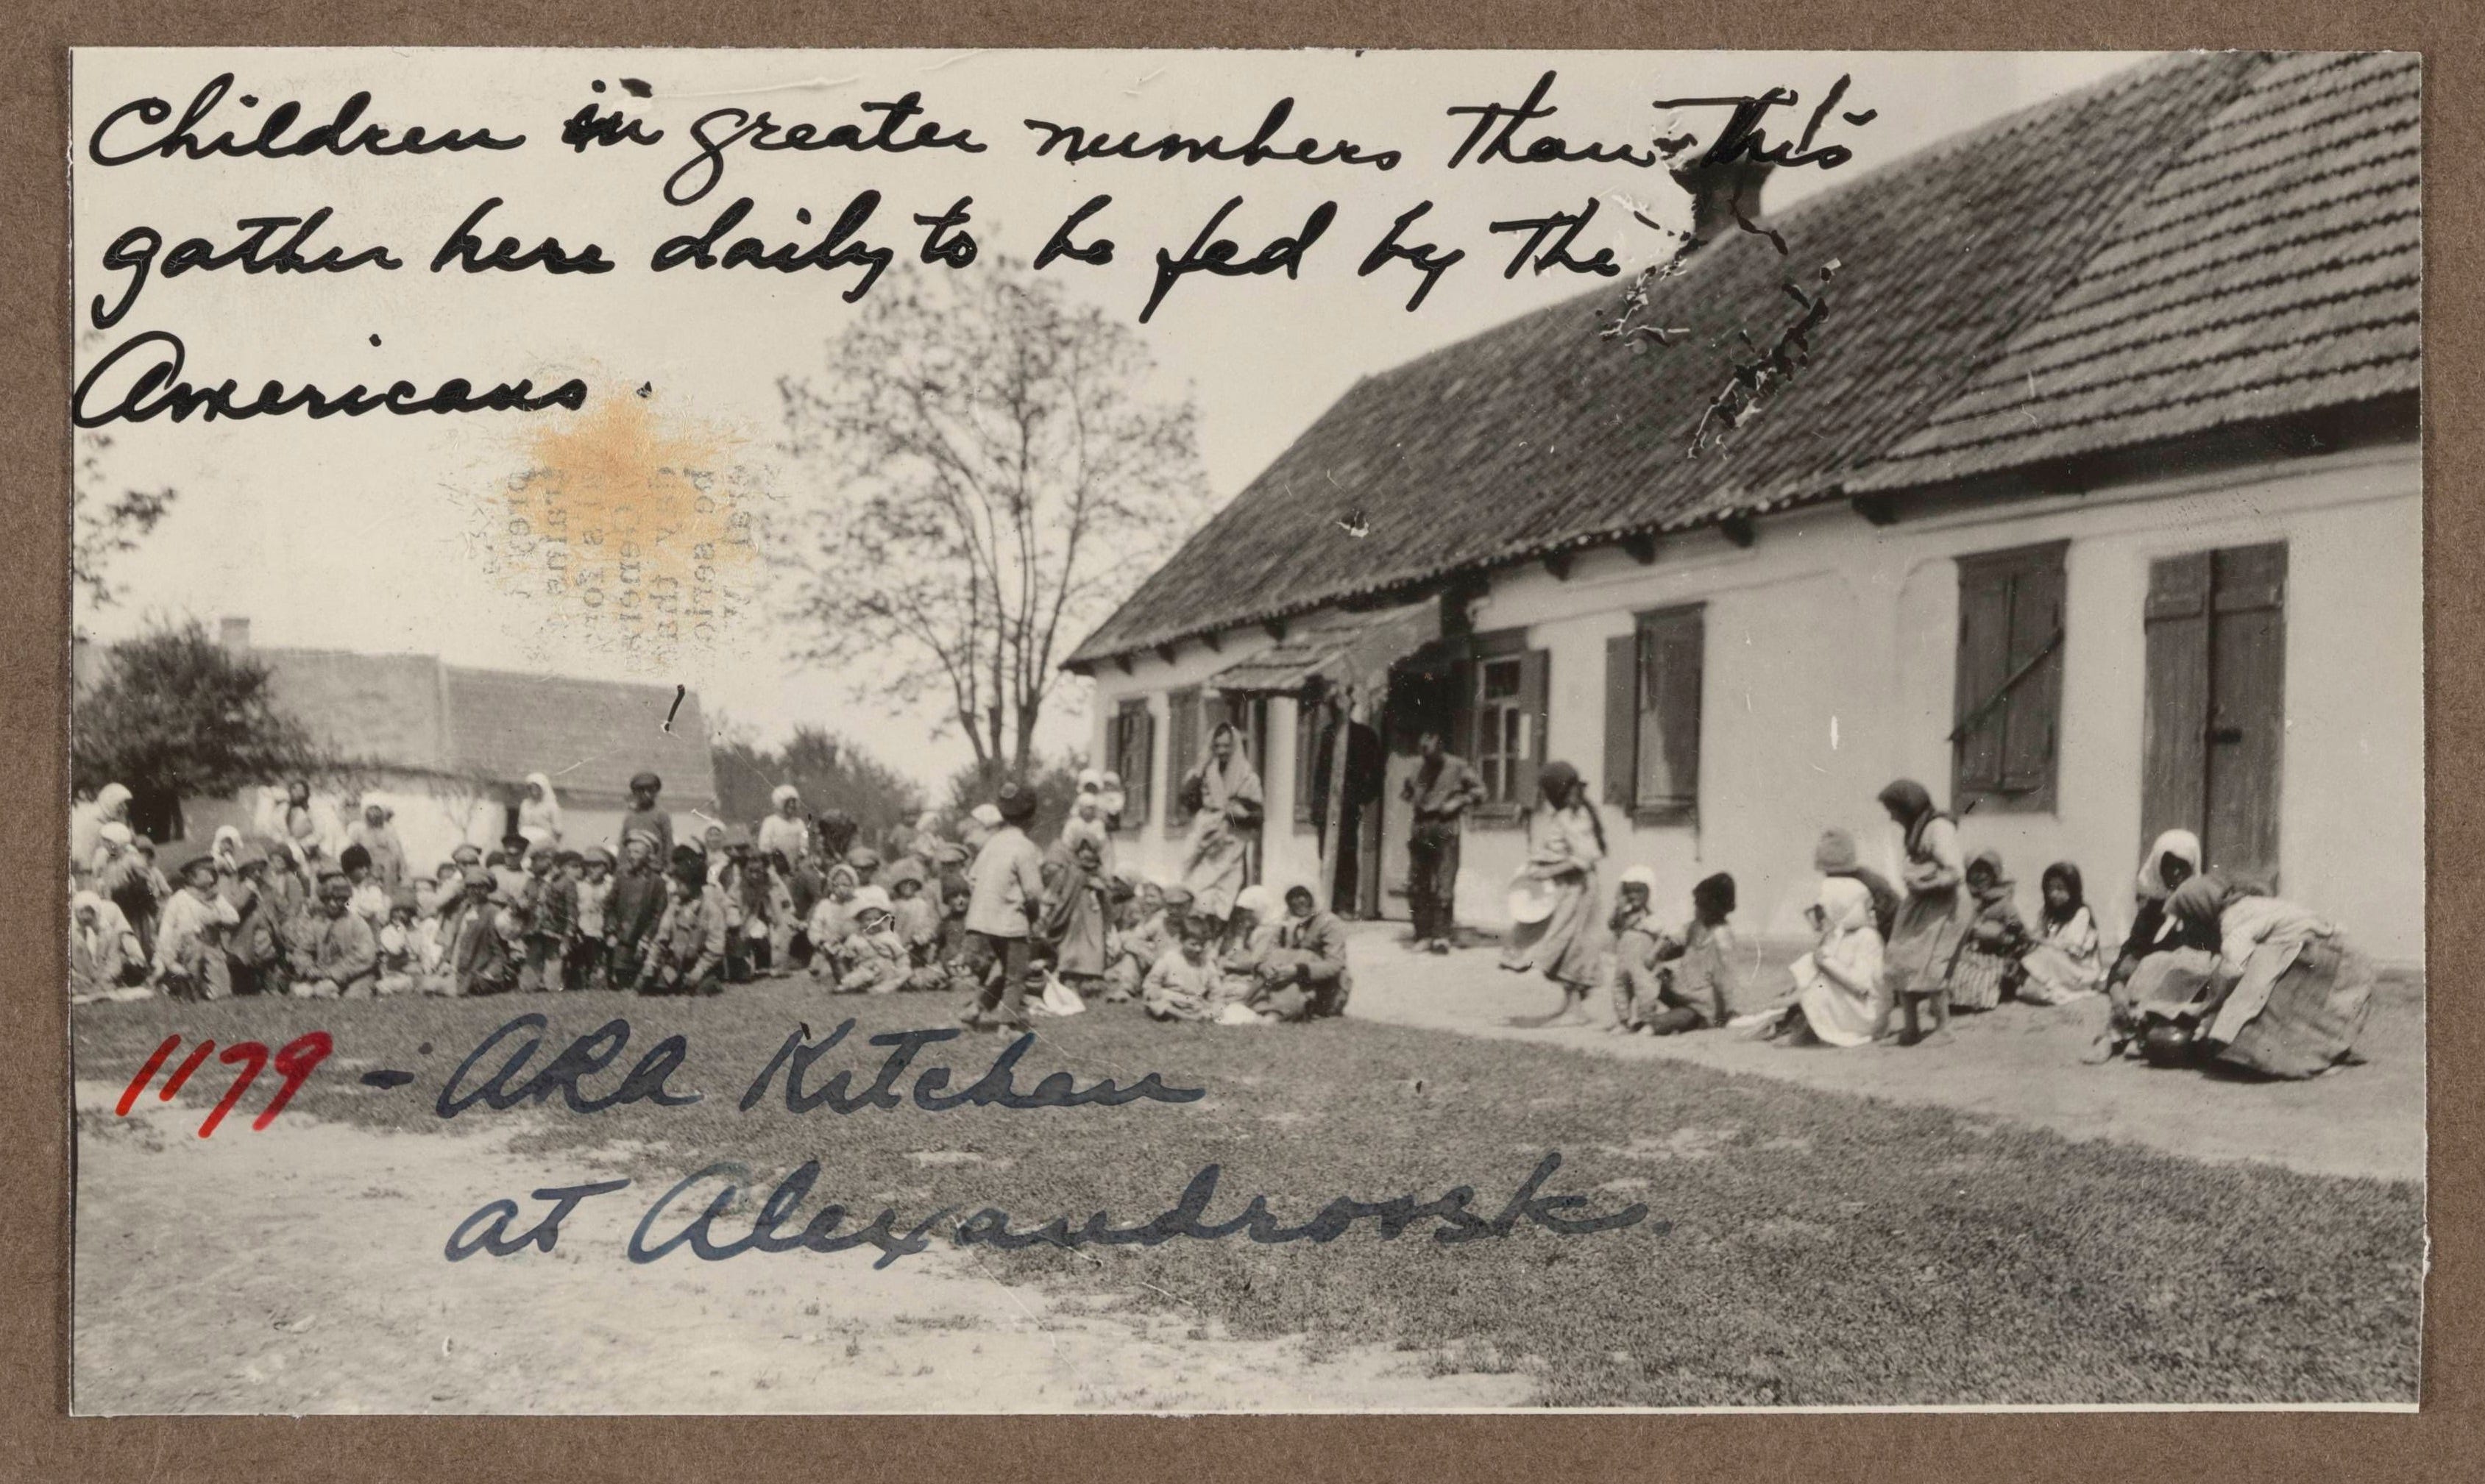 Children in greater numbers than this
gather here daily to be fed by the
Americans.
1179 - ARA Kitchen
at Alexandrovsk.